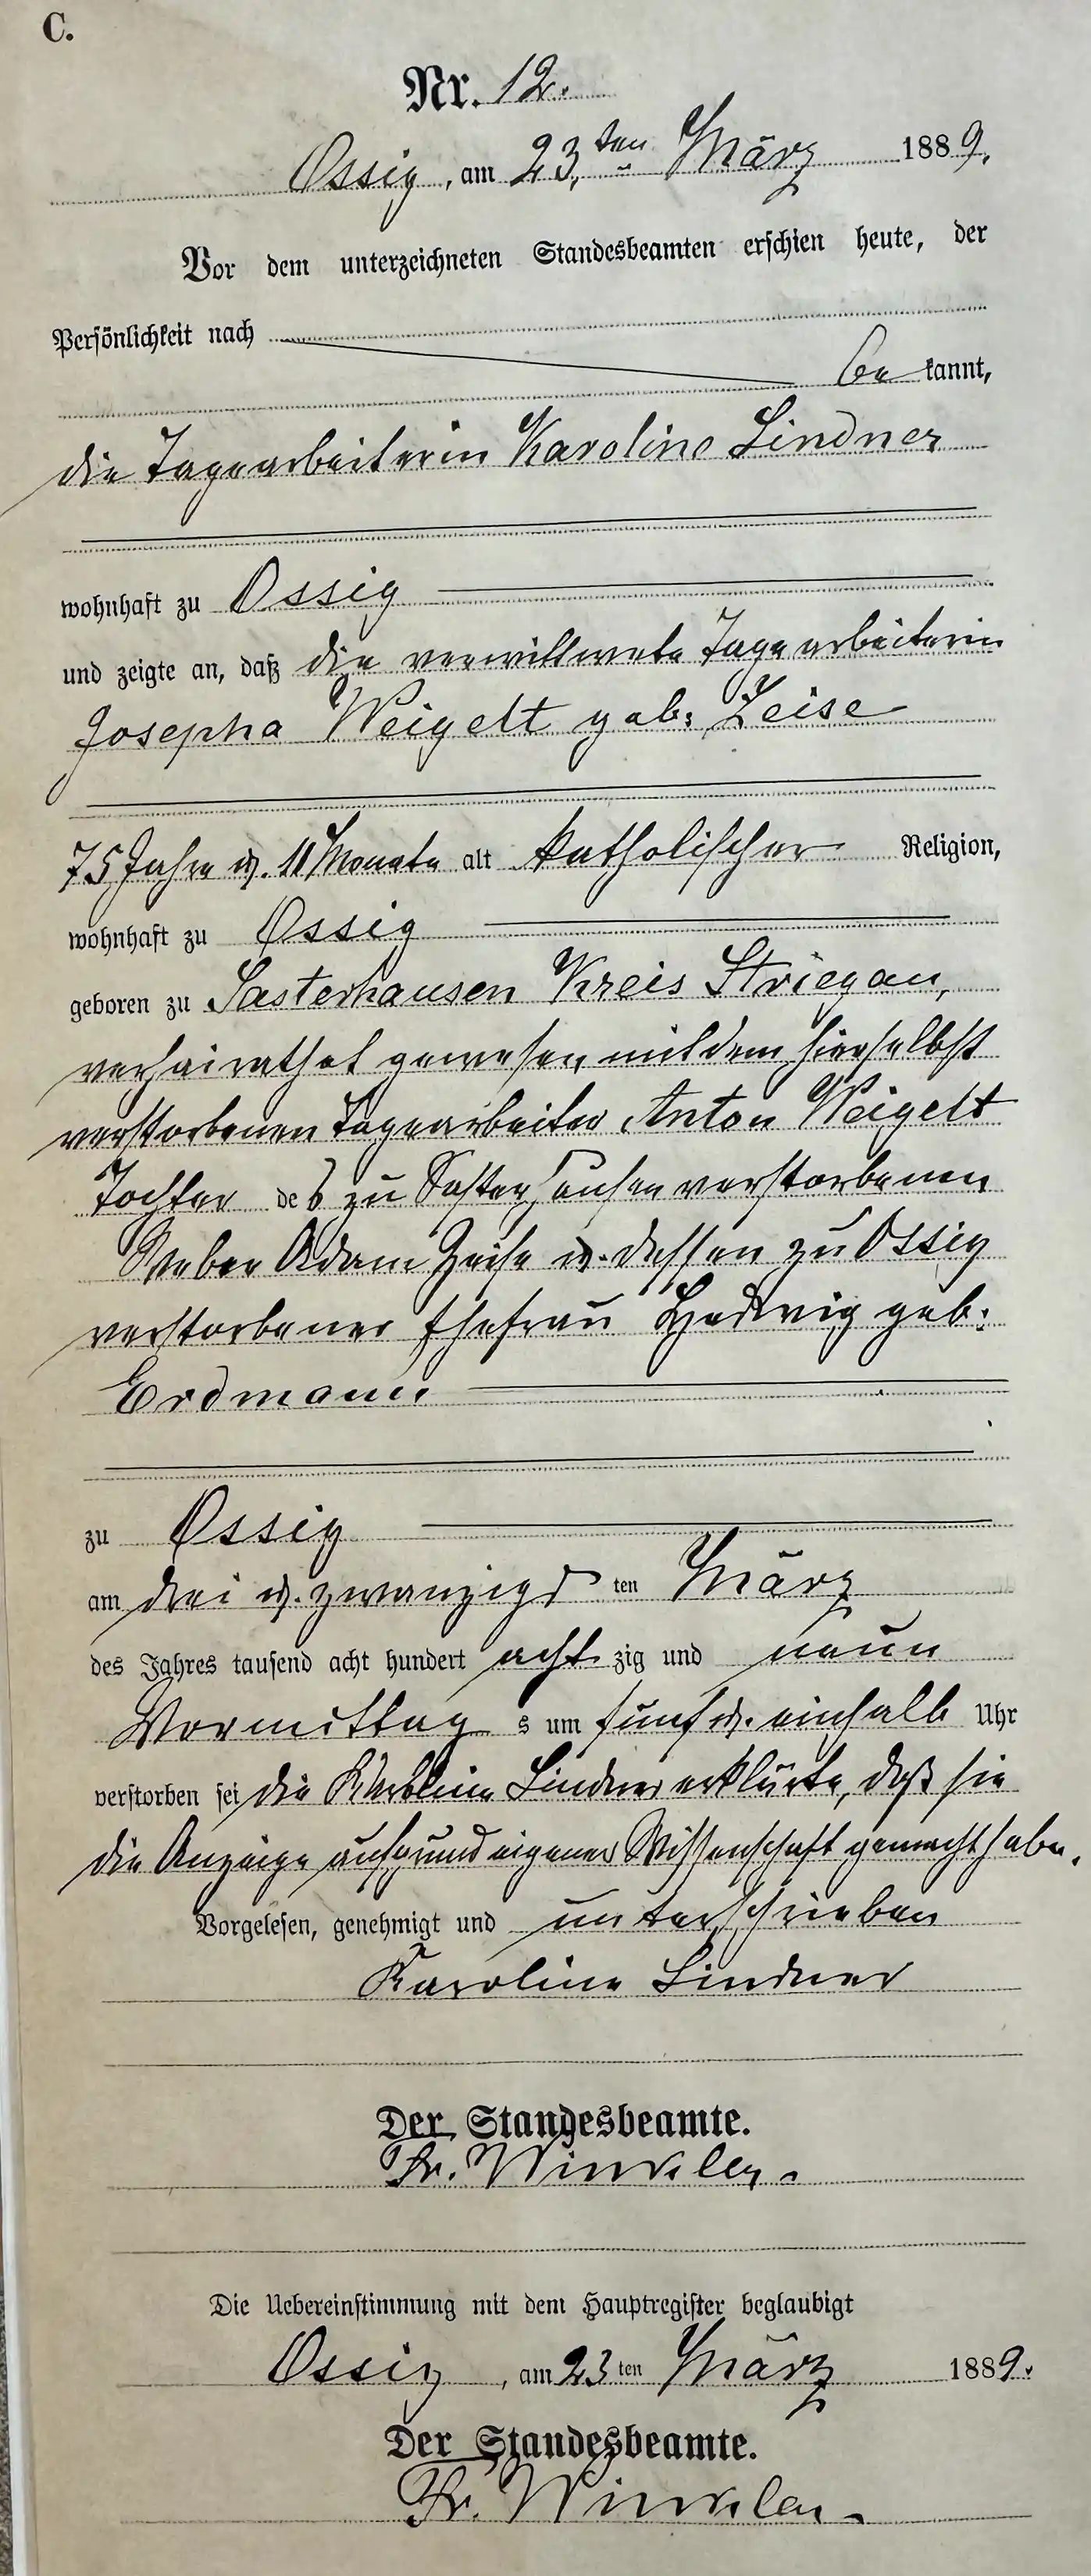 C.
Nr. 12.
Ossig, am 23.ten März 1889.
Vor dem unterzeichneten Standesbeamten erschien heute, der
Persönlichkeit nach
bekannt,
die Tagearbeiterin Karoline Lindner
wohnhaft zu Ossig
und zeigte an, daß die verwittwete Tagearbeiterin
Josepha Weigelt geb. Zeise
75 Jahre u. 10 Monate alt katholischer Religion,
wohnhaft zu Ossig
geboren zu Sasterhausen Kreis Striegau,
verheirathet gewesen mit dem hierselbst
verstorbenen Tagearbeiter Anton Weigelt
Tochter des zu Sasterhausen verstorbenen
Weber Adam Zeise u. dessen zu Ossig
verstorbener Ehefrau Hedwig geb.
Erdmann
zu Ossig
am drei u. zwanzigsten März
des Jahres tausend acht hundert achtzig und neun
Vormittags um fünf u. einhalb Uhr
verstorben sei die Karoline Lindner erklärte, daß sie
die Anzeige aufgrund eigener Wissenschaft gemacht habe.
Vorgelesen, genehmigt und unterschrieben
Karoline Lindner
Der Standesbeamte.
Fr. Winkler.
Die Uebereinstimmung mit dem Hauptregister beglaubigt
Ossig, am 23ten März 1889.
Der Standesbeamte.
Fr. Winkler.